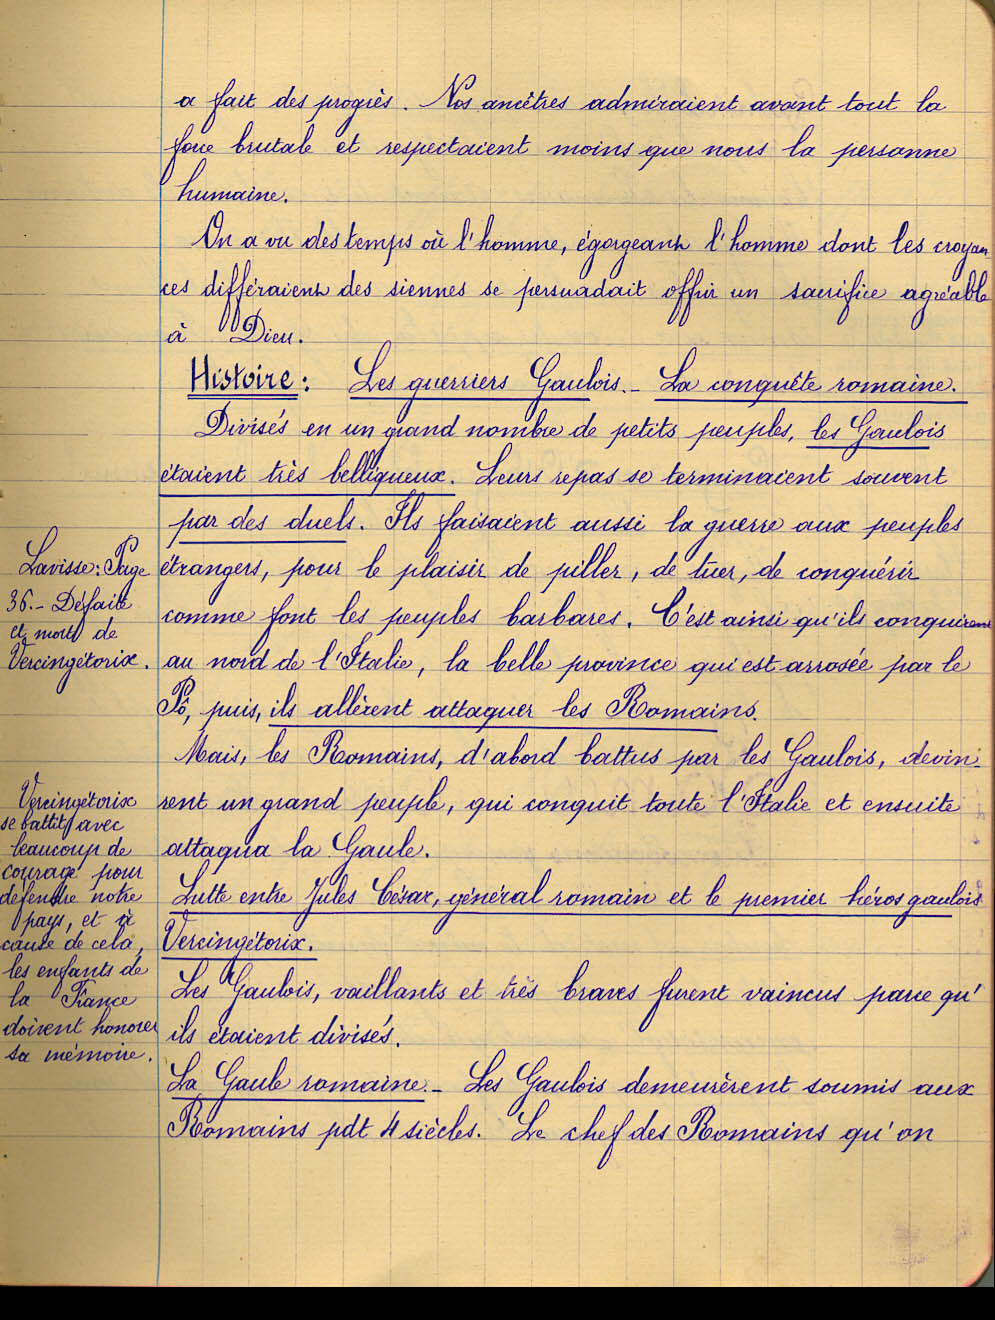 a fait des progrès. Nos ancêtres admiraient avant tout la
force brutale et respectaient moins que nous la personne
humaine.
On a vu des temps où l'homme, égorgeant l'homme dont les croyan
ces différaient des siennes se persuadait offrir un sacrifice agréable
à Dieu.
Histoire : Les guerriers Gaulois. - La conquête romaine.
Divisés en un grand nombre de petits peuples, les Gaulois
étaient très belliqueux. Leurs repas se terminaient souvent
par des duels. Ils faisaient aussi la guerre aux peuples
étrangers, pour le plaisir de piller, de tuer, de conquérir
comme font les peuples barbares. C'est ainsi qu'ils conquirent
au nord de l'Italie, la belle province qui est arrosée par le
Pô, puis, ils allèrent attaquer les Romains.
Mais, les Romains, d'abord battus par les Gaulois, devin-
rent un grand peuple, qui conquit toute l'Italie et ensuite
attaqua la Gaule.
Lutte entre Jules César, général romain et le premier héros gaulois
Vercingétorix.
Les Gaulois, vaillants et très braves furent vaincus parce qu'
ils étaient divisés.
La Gaule romaine. - Les Gaulois demeurèrent soumis aux
Romains pdt 4 siècles. Le chef des Romains qu'on
Lavisse : Page
36. - Défaite
et mort de
Vercingétorix.
Vercingétorix
se battit avec
beaucoup de
courage pour
défendre notre
pays, et à
cause de cela,
les enfants de
la France
doivent honorer
sa mémoire.